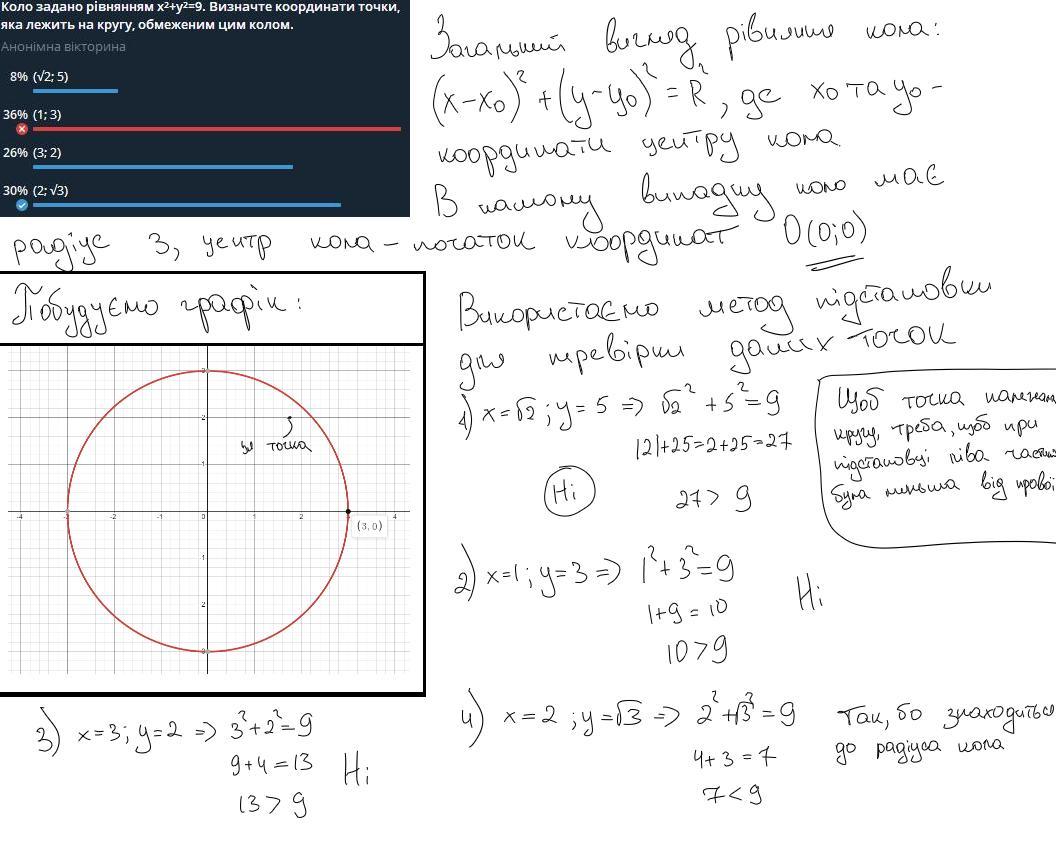 Коло задано рівнянням x²+y²=9. Визначте координати точки,
яка лежить на кругу, обмеженим цим колом.
Анонімна вікторина
8% (√2; 5)
36% (1; 3)
26% (3; 2)
30% (2; √3)
Загальний вигляд рівняння кола:
(x-x₀)²+(y-y₀)²=R², де x₀ та y₀ -
координати центру кола.
В даному випадку коло має
радіус 3, центр кола - початок координат O(0;0)
Побудуємо графік:
3
2
1
-4 -3 -2 -1 0 1 2 4
1
2
3
ця точка
(3, 0)
Використаємо метод підстановки
для перевірки даних точок
1) x=√2; y=5 => √2²+5²=9
|2|+25=2+25=27
Ні
27 > 9
Щоб точка належал
кругу, треба, щоб при
підстановці ліва части
була меньша від правої
2) x=1; y=3 => 1²+3²=9
1+9=10
Ні
10>9
3) x=3; y=2 => 3²+2²=9
9+4=13
Ні
13>9
4) x=2; y=√3 => 2²+√3²=9
4+3=7
7<9
Так, бо знаходиться
до радіуса кола